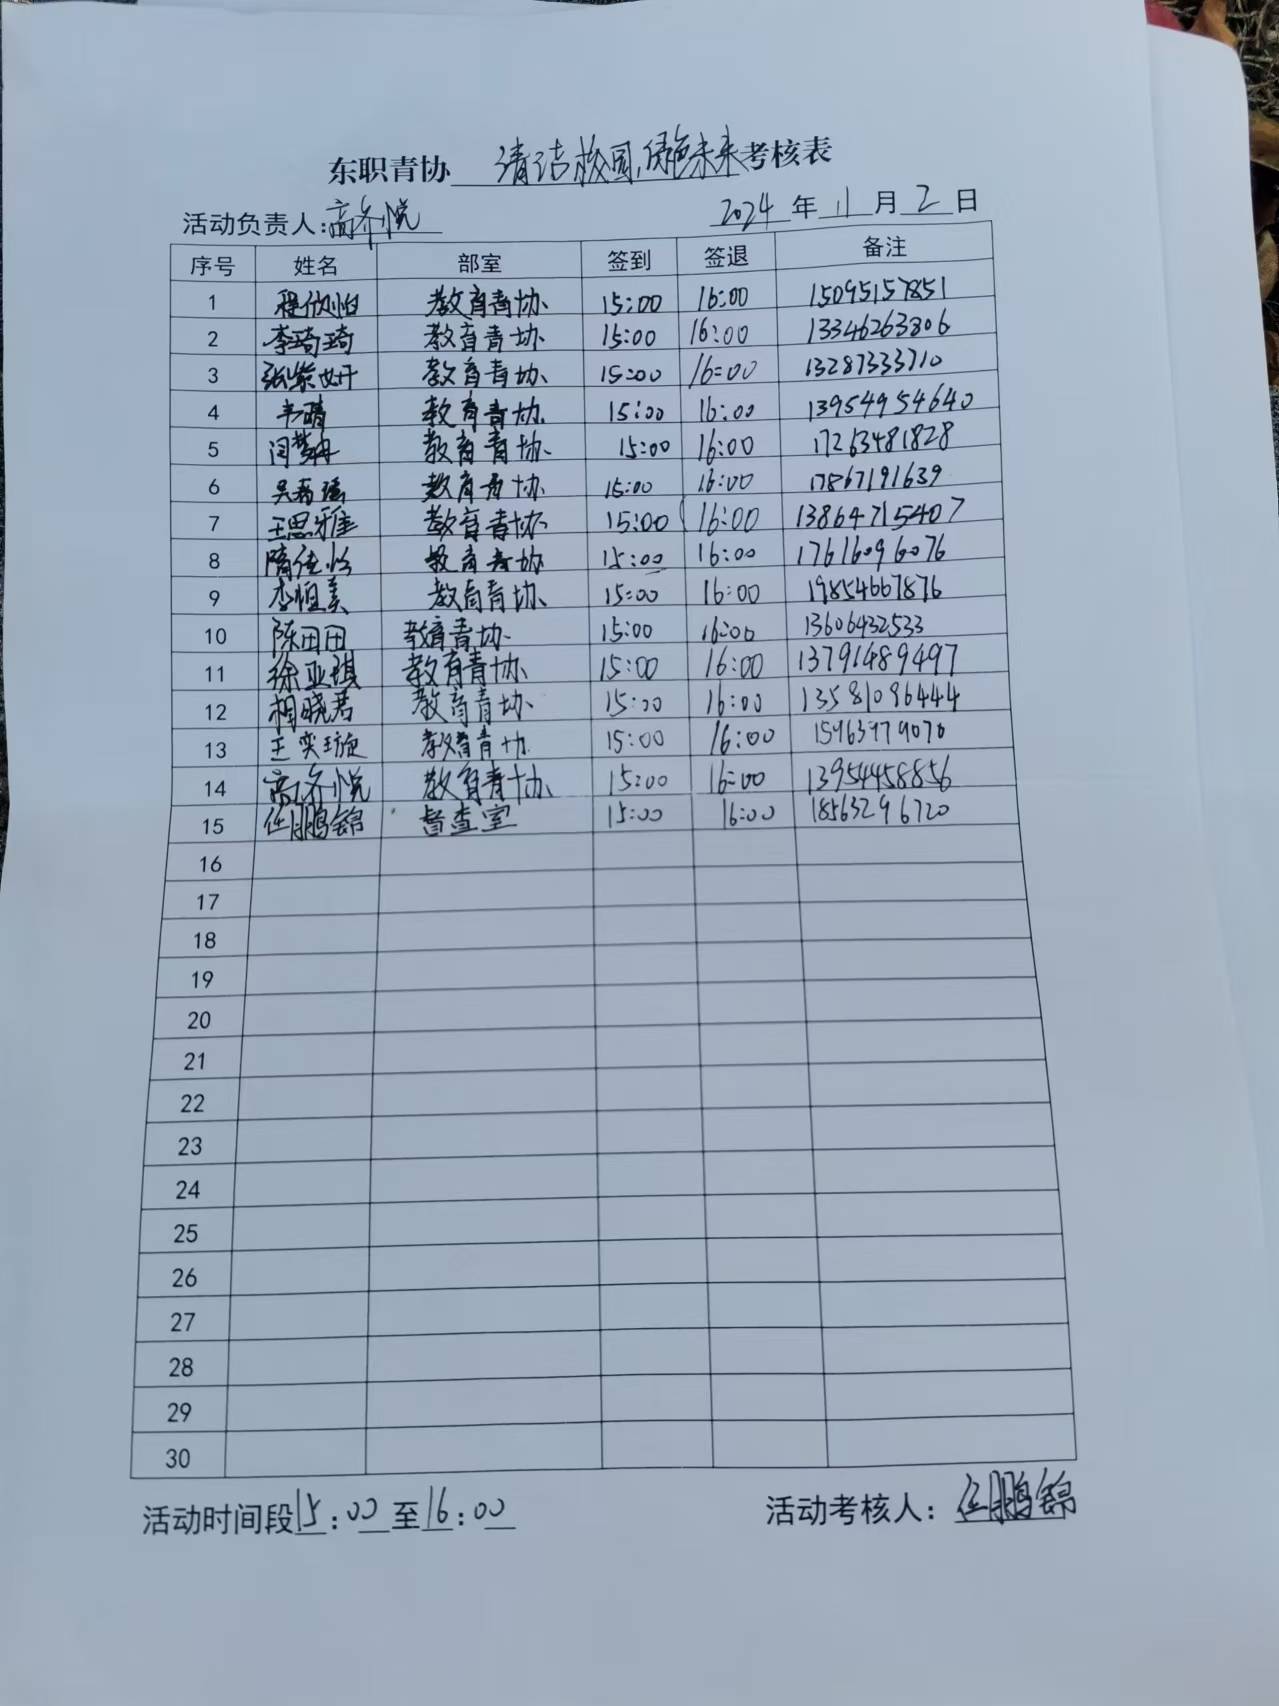 东职青协 清洁校园,绿色未来考核表
活动负责人:高乔悦 2024年11月2日
序号 姓名 部室 签到 签退 备注
1 程欣怡 教育青协 15:00 16:00 15095157851
2 李琦琦 教育青协 15:00 16:00 13346263806
3 张紫妍 教育青协 15:00 16:00 13287333710
4 韦晴 教育青协 15:00 16:00 13954954640
5 闫梦冉 教育青协 15:00 16:00 17263481828
6 教育青协 15:00 16:00 17867191639
7 王思雅 教育青协 15:00 16:00 13864715407
8 隋佳怡 教育青协 15:00 16:00 17616096076
9 李恒美 教育青协 15:00 16:00 19854667876
10 陈田田 教育青协 15:00 16:00 13606432533
11 徐亚琪 教育青协 15:00 16:00 13791489497
12 相晓君 教育青协 15:00 16:00 13581096444
13 王奕璇 教育青协 15:00 16:00 15963979070
14 高乔悦 教育青协 15:00 16:00 13954458856
15 任鹏锦 督查室 15:00 16:00 18563296720
16
17
18
19
20
21
22
23
24
25
26
27
28
29
30
活动时间段15:00至16:00 活动考核人:任鹏锦